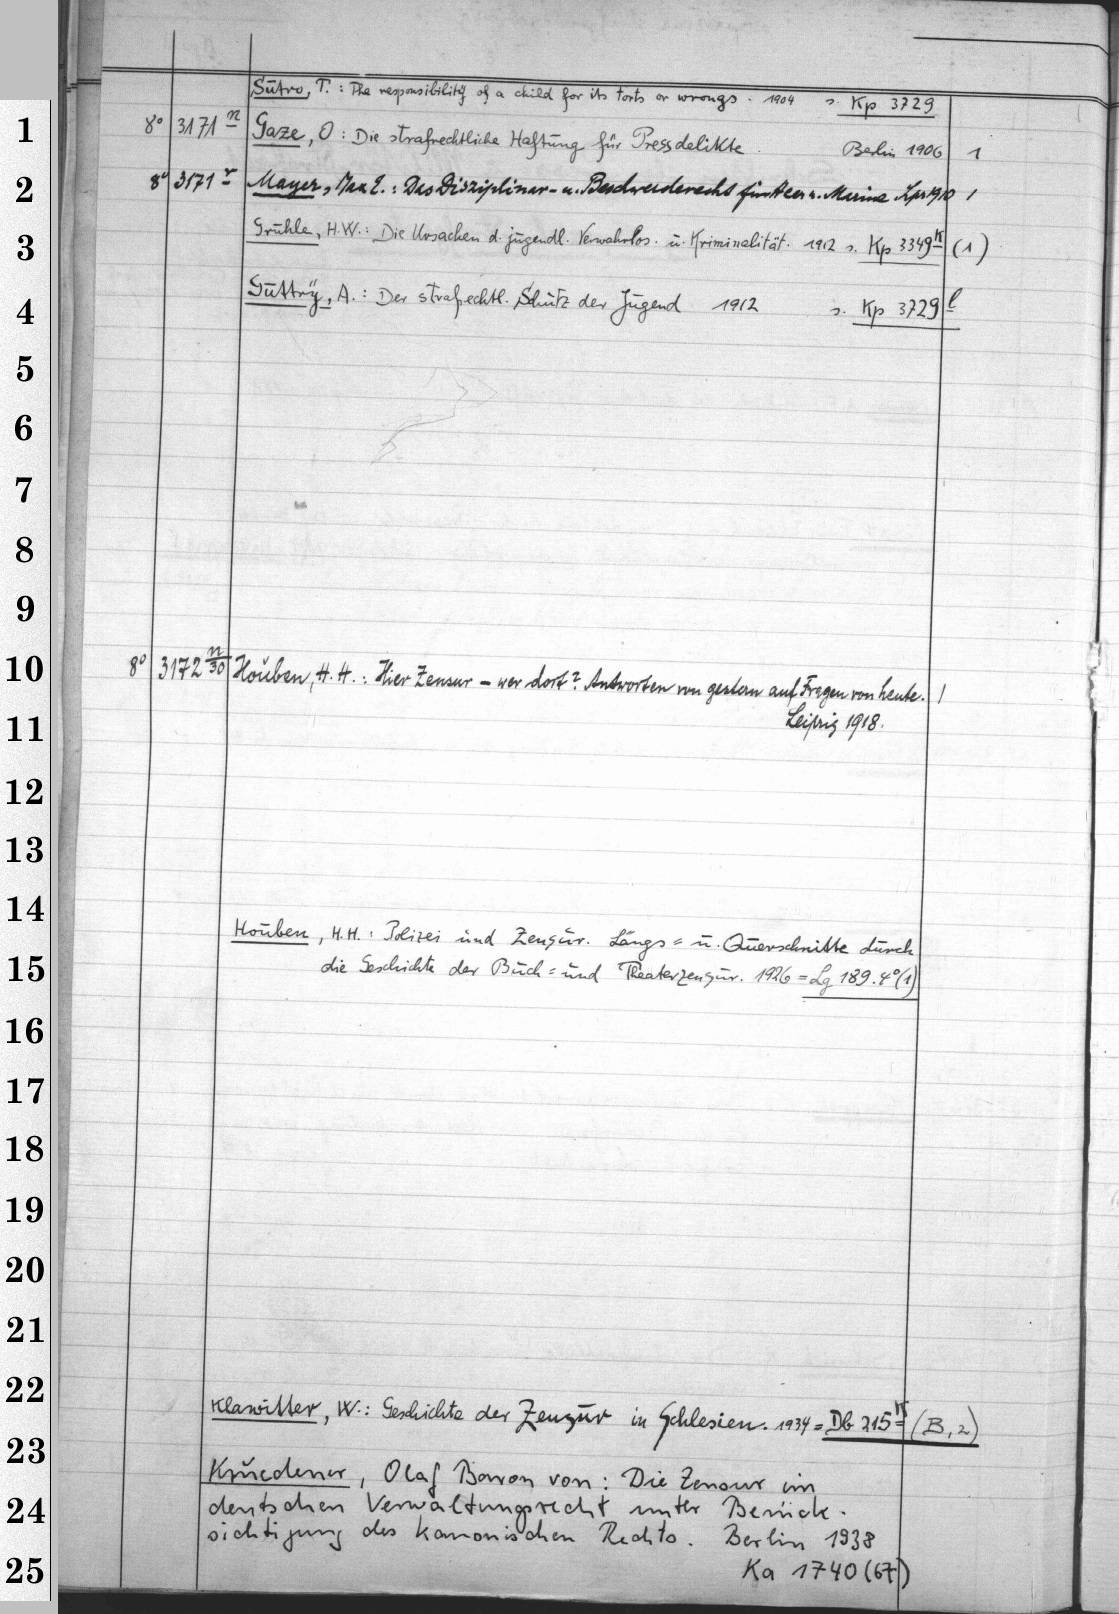 Sutro, T.: The responsibility of a child for its torts or wrongs. 1904 s. Kp 3729
1 8° 3171 n Gaze, O: Die strafrechtliche Haftung für Pressdelikte. Berlin 1906 1
2 8° 3171 r Mayer, Max E.: Das Disziplinar- u. Beschwerderecht für Heer u. Marine Lpz 1910 1
3 Gruhle, H.W.: Die Ursachen d. jugendl. Verwahrlos. u. Kriminalität. 1912 s. Kp 3349 k (1)
4 Guttry, A.: Der strafrechtl. Schutz der Jugend 1912 s. Kp 3729 l
5
6
7
8
9
10 8° 3172 n/30 Houben, H. H.: Hier Zensur – wer dort? Antworten von gestern auf Fragen von heute. 1
11 Leipzig 1918.
12
13
14 Houben, H.H.: Polizei und Zensur. Längs= u. Querschnitte durch
15 die Geschichte der Buch= und Theaterzensur. 1926 = Lg 189.4°(1)
16
17
18
19
20
21
22 Klawitter, W.: Geschichte der Zensur in Schlesien. 1934 = Db 215 k (B,2)
23 Kruedener, Olaf Baron von: Die Zensur im
24 deutschen Verwaltungsrecht unter Berück-
sichtigung des kanonischen Rechts. Berlin 1938
25 Ka 1740 (67)